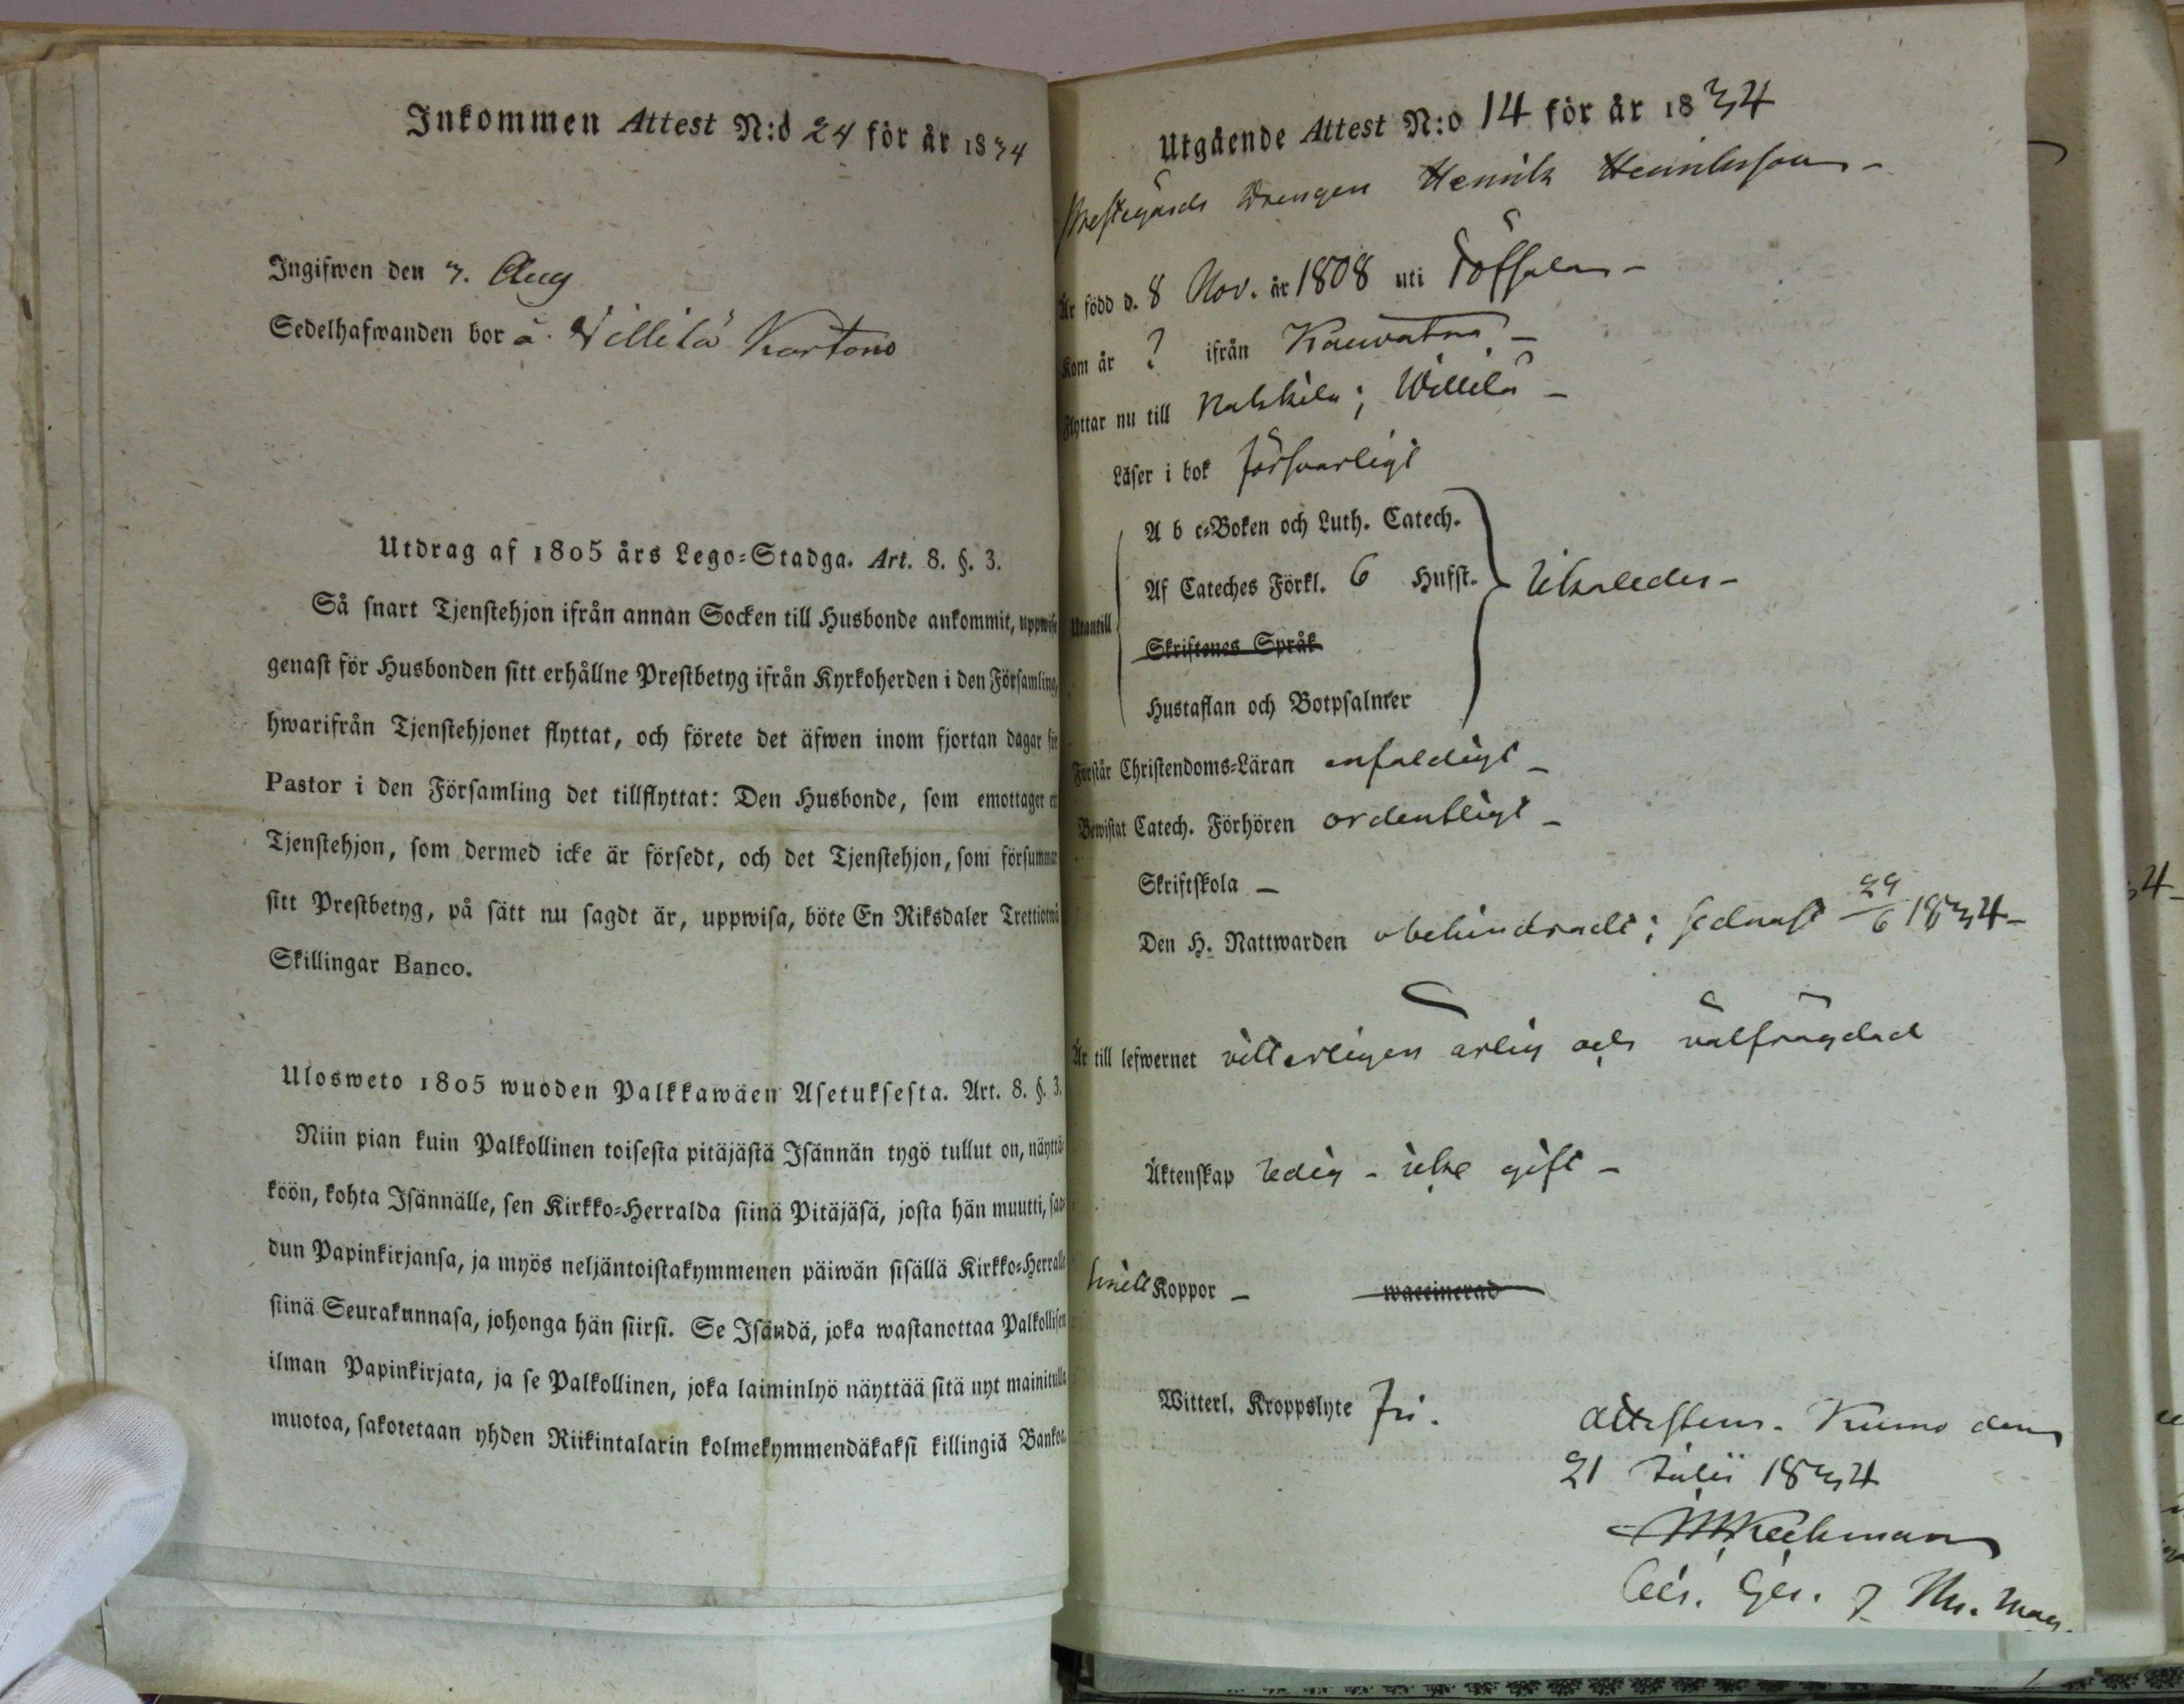 Inkommen Attest N:o 24 för år 1834
Ingifwen den 7. Aug
Sedelhafwanden bor å Villilä Kartano
Utdrag af 1805 års Lego-Stadga. Art. 8. §. 3.
Så snart Tjenstehjon ifrån annan Socken till Husbonde ankommit, uppwise
genast för Husbonden sitt erhållne Prestbetyg ifrån Kyrkoherden i den Församling,
hwarifrån Tjenstehjonet flyttat, och förete det äfwen inom fjortan dagar för
Pastor i den Församling det tillflyttat: Den Husbonde, som emottager ett
Tjenstehjon, som dermed icke är försedt, och det Tjenstehjon, som försummar
sitt Prestbetyg, på sätt nu sagdt är, uppwisa, böte En Riksdaler Trettiotwå
Skillingar Banco.
Ulosweto 1805 wuoden Palkkawäen Asetuksesta. Art. 8. §. 3.
Niin pian kuin Palkollinen toisesta pitäjästä Isännän tygö tullut on, näyttä-
köön, kohta Isännälle, sen Kirkko-Herralda siinä Pitäjäsä, josta hän muutti, saa-
dun Papinkirjansa, ja myös neljäntoistakymmenen päiwän sisällä Kirkko-Herralle
siinä Seurakunnasa, johonga hän siirsi. Se Isändä, joka wastanottaa Palkollisen
ilman Papinkirjata, ja se Palkollinen, joka laiminlyö näyttää sitä nyt mainitulla
muotoa, sakotetaan yhden Riikintalarin kolmekymmendäkaksi killingiä Bankoa.
Utgående Attest N:o 14 för år 1834
Prestegårds Drengen Henrik Henriksson -
Är född d. 8 Nov. år 1808 uti Töfsala -
Kom år ? ifrån Kauvatsa -
Flyttar nu till Nakkila; Willilä -
Läser i bok försvarligt
A b c-Boken och Luth. Catech.
Af Cateches Förkl. 6 Hufst. Likaledes -
Utantill
Skriftenes Språk
Hustaflan och Botpsalmer
Förstår Christendoms-Läran enfaldigt -
Bewistat Catech. Förhören ordentligt -
Skriftskola -
Den H. Nattwarden obehindradt; sednast 29/6 1834 -
Är till lefwernet vitterligen ärlig och välfrägdad
Äktenskap ledig - icke gift -
Koppor - waccinerad
Witterl. Kroppslyte fri.
Attesteras. Kumo den
21 Julii 1834